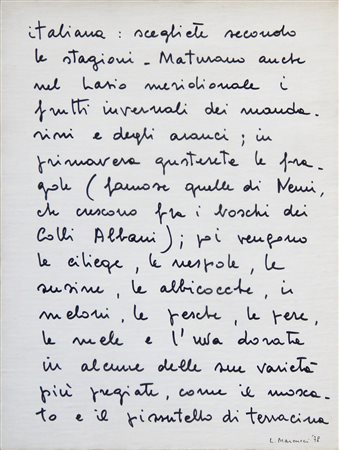 italiana : scegliete secondo
le stagioni - Maturano anche
nel Lazio meridionale i
frutti invernali dei manda-
rini e degli aranci ; in
primavera gusterete le fra-
gole (famose quelle di Nemi,
che crescono fra i boschi dei
Colli Albani) ; poi vengono
le ciliege, le nespole, le
susine, le albicocche, i
meloni, le pesche, le pere,
le mele e l'uva dorata
in alcune delle sue varietà
più pregiate, come il mosca-
to e il pizzutello di terracina
L. Marcucci '78